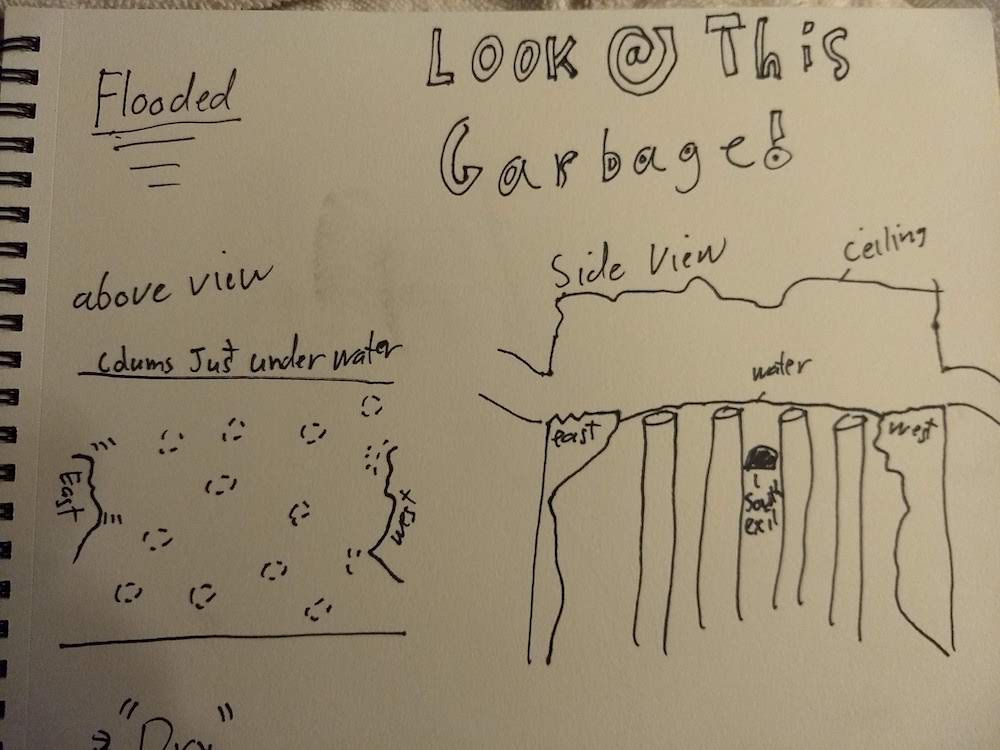 Flooded
Look @ This
Garbage!
above view
Colums Just under water
East
West
Side View
ceiling
water
east
west
South
exit
"Dry"